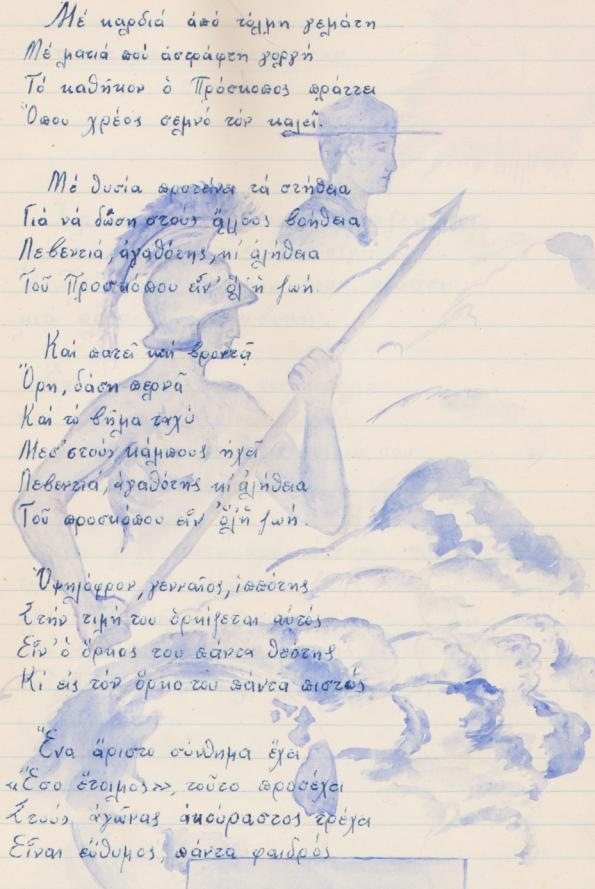 Μέ καρδιά ἀπό τόλμη γεμάτη
Μέ ματιά πού ἀστράφτη γοργή
Τό καθῆκον ὁ Πρόσκοπος πράττει
Ὅπου χρέος σεμνό τόν καλεῖ.
Μέ θυσία προτείνει τά στήθεια
Γιά νά δώση στούς ἄλλους βοήθεια
Λεβεντιά, ἀγαθότης, κι ἀλήθεια
Τοῦ Προσκόπου εἶν' ὅλ' ἡ ζωή.
Καί πατεῖ καί βροντᾷ
Ὄρη, δάση περνᾷ
Καί τό βῆμα ταχύ
Μεσ' στούς κάμπους ἠχεῖ
Λεβεντιά, ἀγαθότης κι' ἀλήθεια
Τοῦ προσκόπου εἶν' ὅλ' ἡ ζωή.
Ὑψηλόφρον, γενναῖος, ἱππότης
Στήν τιμή του ὁρκίζεται αὐτός
Εἶν' ὁ ὅρκος του πάντα θεότης
Κι εἰς τόν ὅρκο του πάντα πιστός
Ἕνα ἄριστο σύνθημα ἔχει
«Ἔσο ἕτοιμος», τοῦτο προσέχει
Στούς ἀγῶνας ἀκούραστος τρέχει
Εἶναι εὔθυμος, πάντα φαιδρός